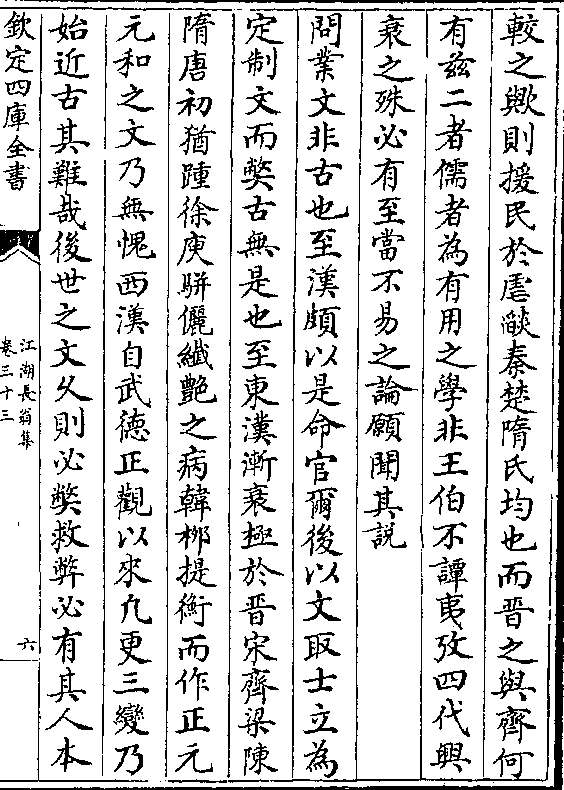 較之歟則援民於虐燄秦楚隋氏均也而晉之與齊何
有兹二者儒者為有用之學非王伯不譚夷攷四代興
衰之殊必有至當不易之論願聞其説
問業文非古也至漢頗以是命官爾後以文取士立為
定制文而弊古無是也至東漢漸衰極於晉宋齊梁陳
隋唐初猶踵徐庾駢儷纖艶之病韓栁提衡而作正元
元和之文乃無愧西漢自武德正觀以來凡更三變乃
始近古其難哉後世之文乆則必弊救弊必有其人本
欽定四庫全書
江湖長翁集
卷三十三
六